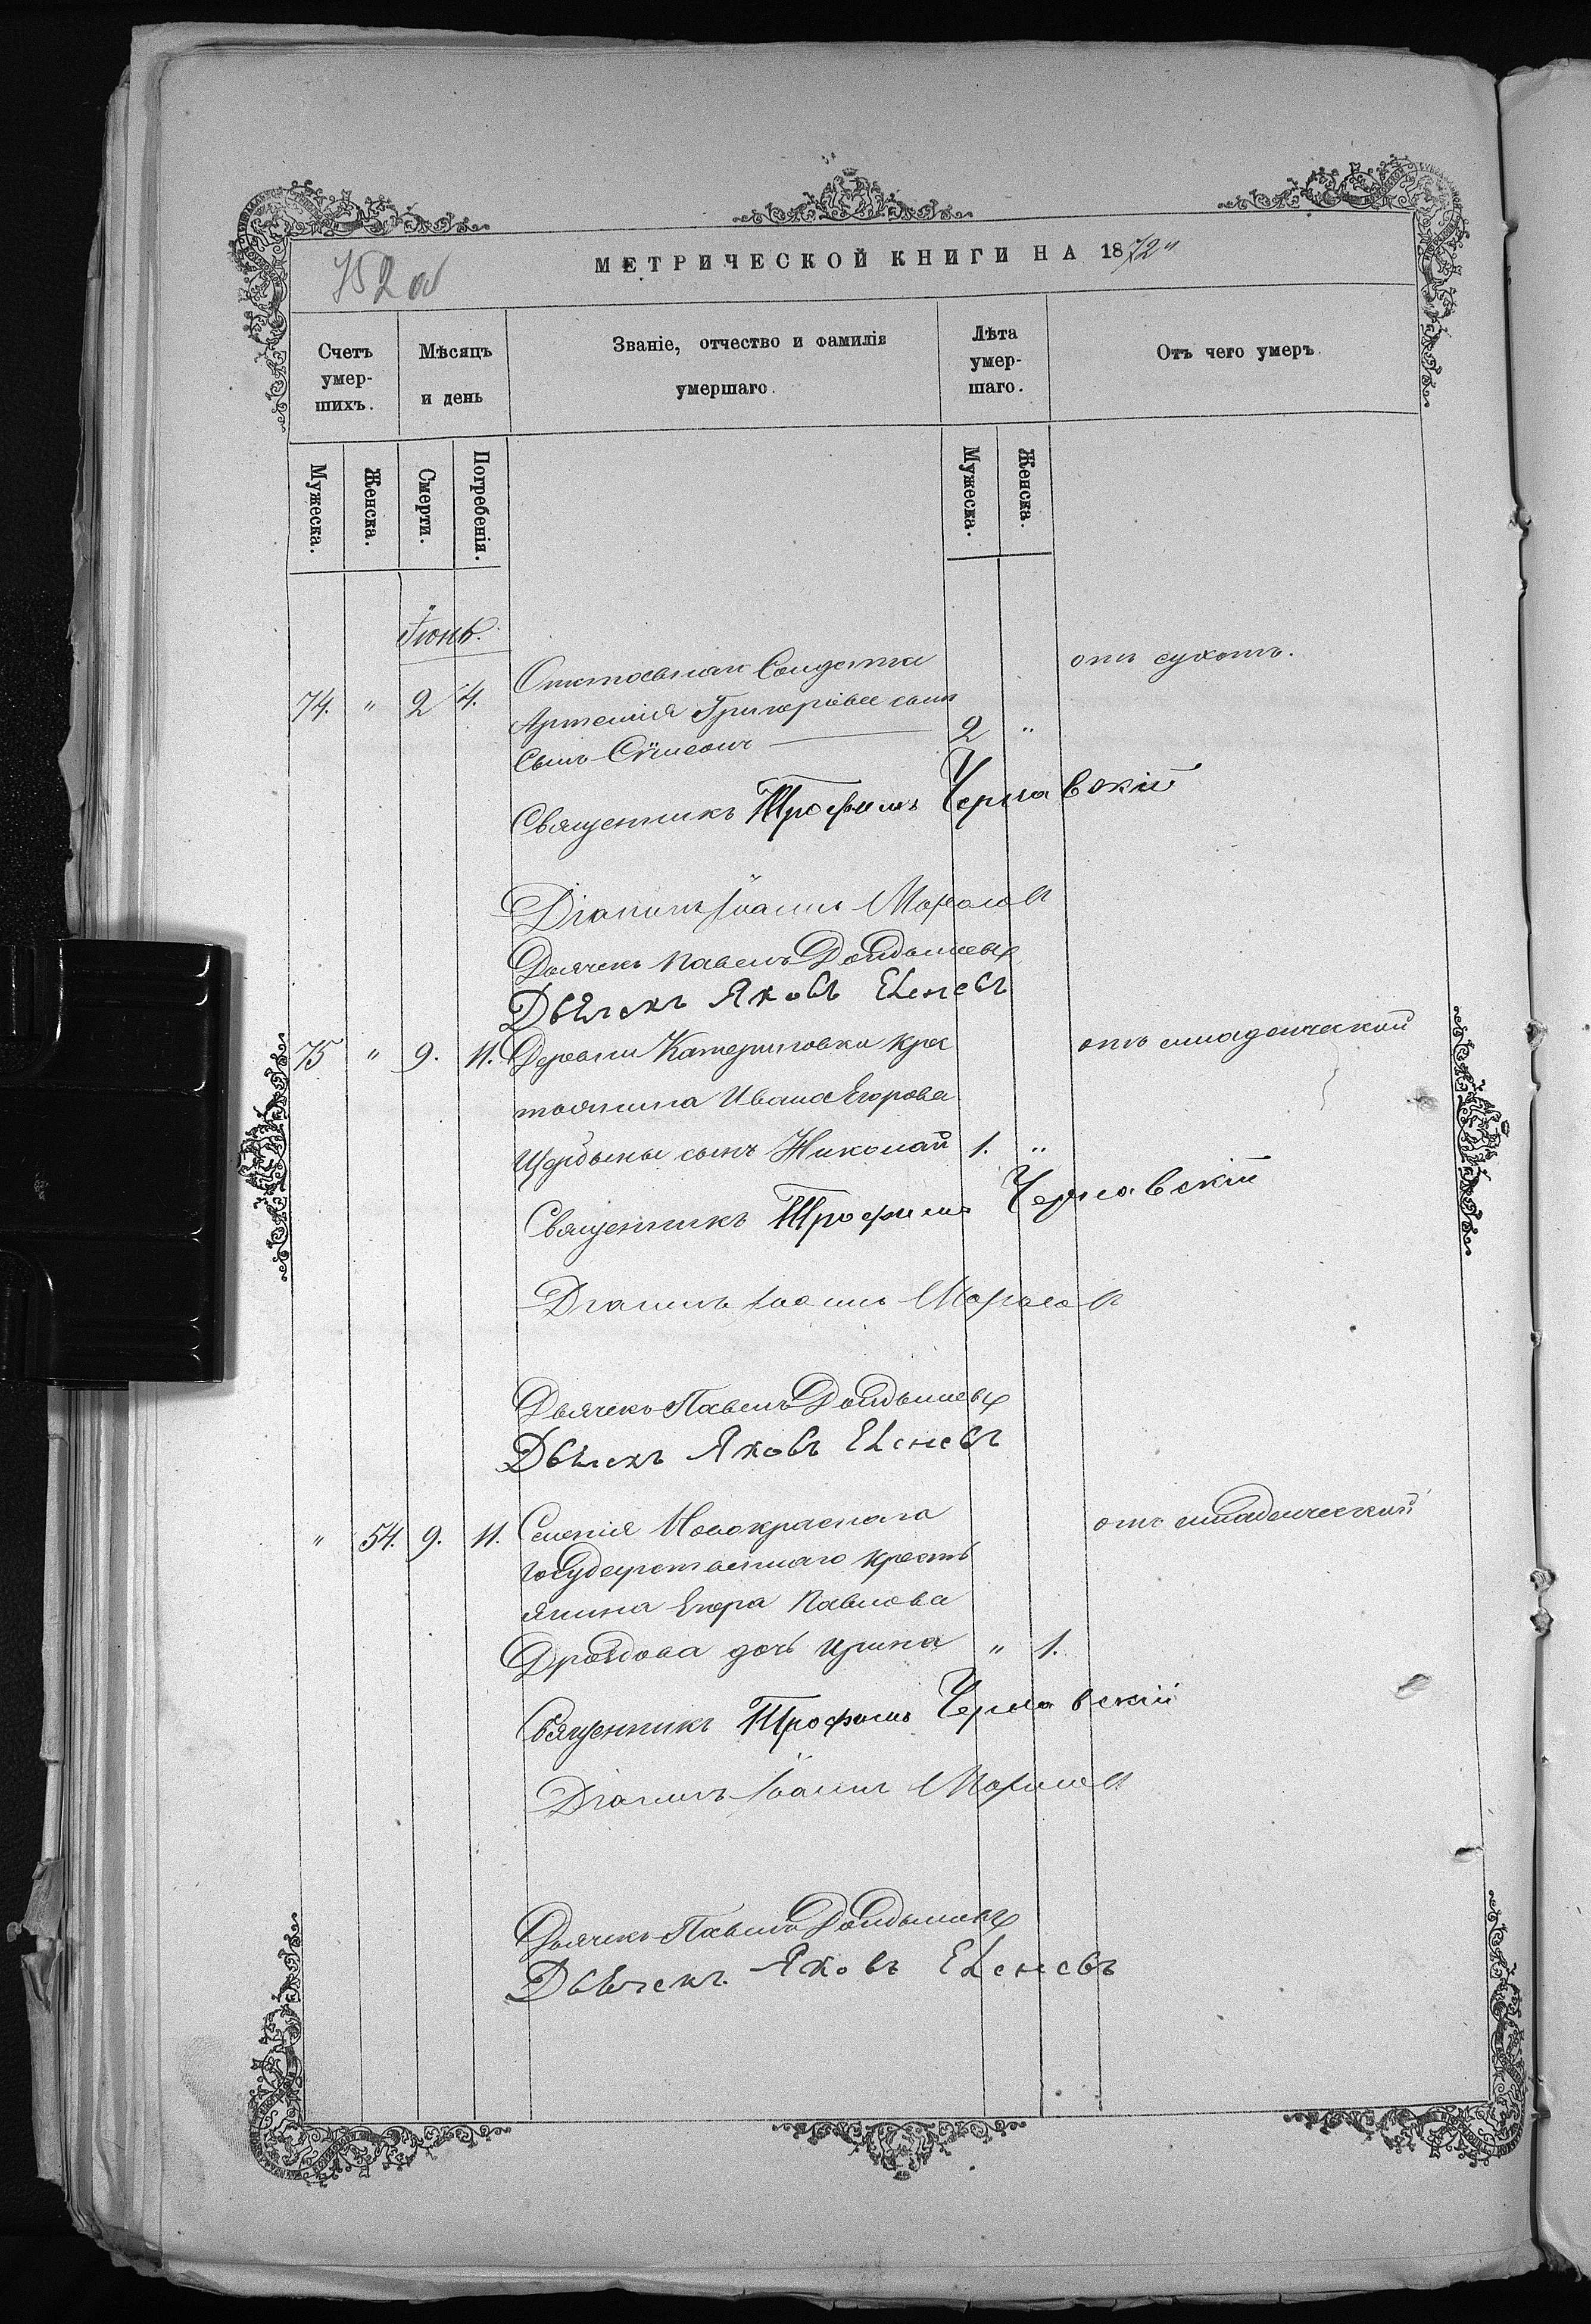 752 об
МЕТРИЧЕСКОЙ КНИГИ НА 1872"
Счетъ умер-шихъ.
Мѣсяцъ и день
Званіе, отчество и фамилія умершаго.
Лѣта умер-шаго.
Отъ чего умеръ.
Мужеска.
Женска.
Смерти.
Погребенія.
Мужеска.
Женска.
Іюнь.
74. " 2 4. Солдата отъ сухотъ.
Артемія Григорьева
сынъ Сѵмеонъ 2 "
Священникъ Трофимъ Чернавскій
Діаконъ Іоаннъ
Дьячекъ Павелъ
Дьячекъ Яковъ
75 " 9. 11. Деревни Катериновки крес отъ младенческой
тьянина Ивана Егорова
сынъ Николай 1. "
Священникъ Трофимъ Чернавскій
Діаконъ Іоаннъ
Дьячекъ Павелъ
Дьячекъ Яковъ
" 54. 9. 11. Селенія Новокраснаго отъ младенческой
государственнаго кресть
янина Егора Павлова
Дроздова дочь Ирина " 1.
Священникъ Трофимъ Чернавскій
Діаконъ Іоаннъ
Дьячекъ Павелъ
Дьячекъ Яковъ